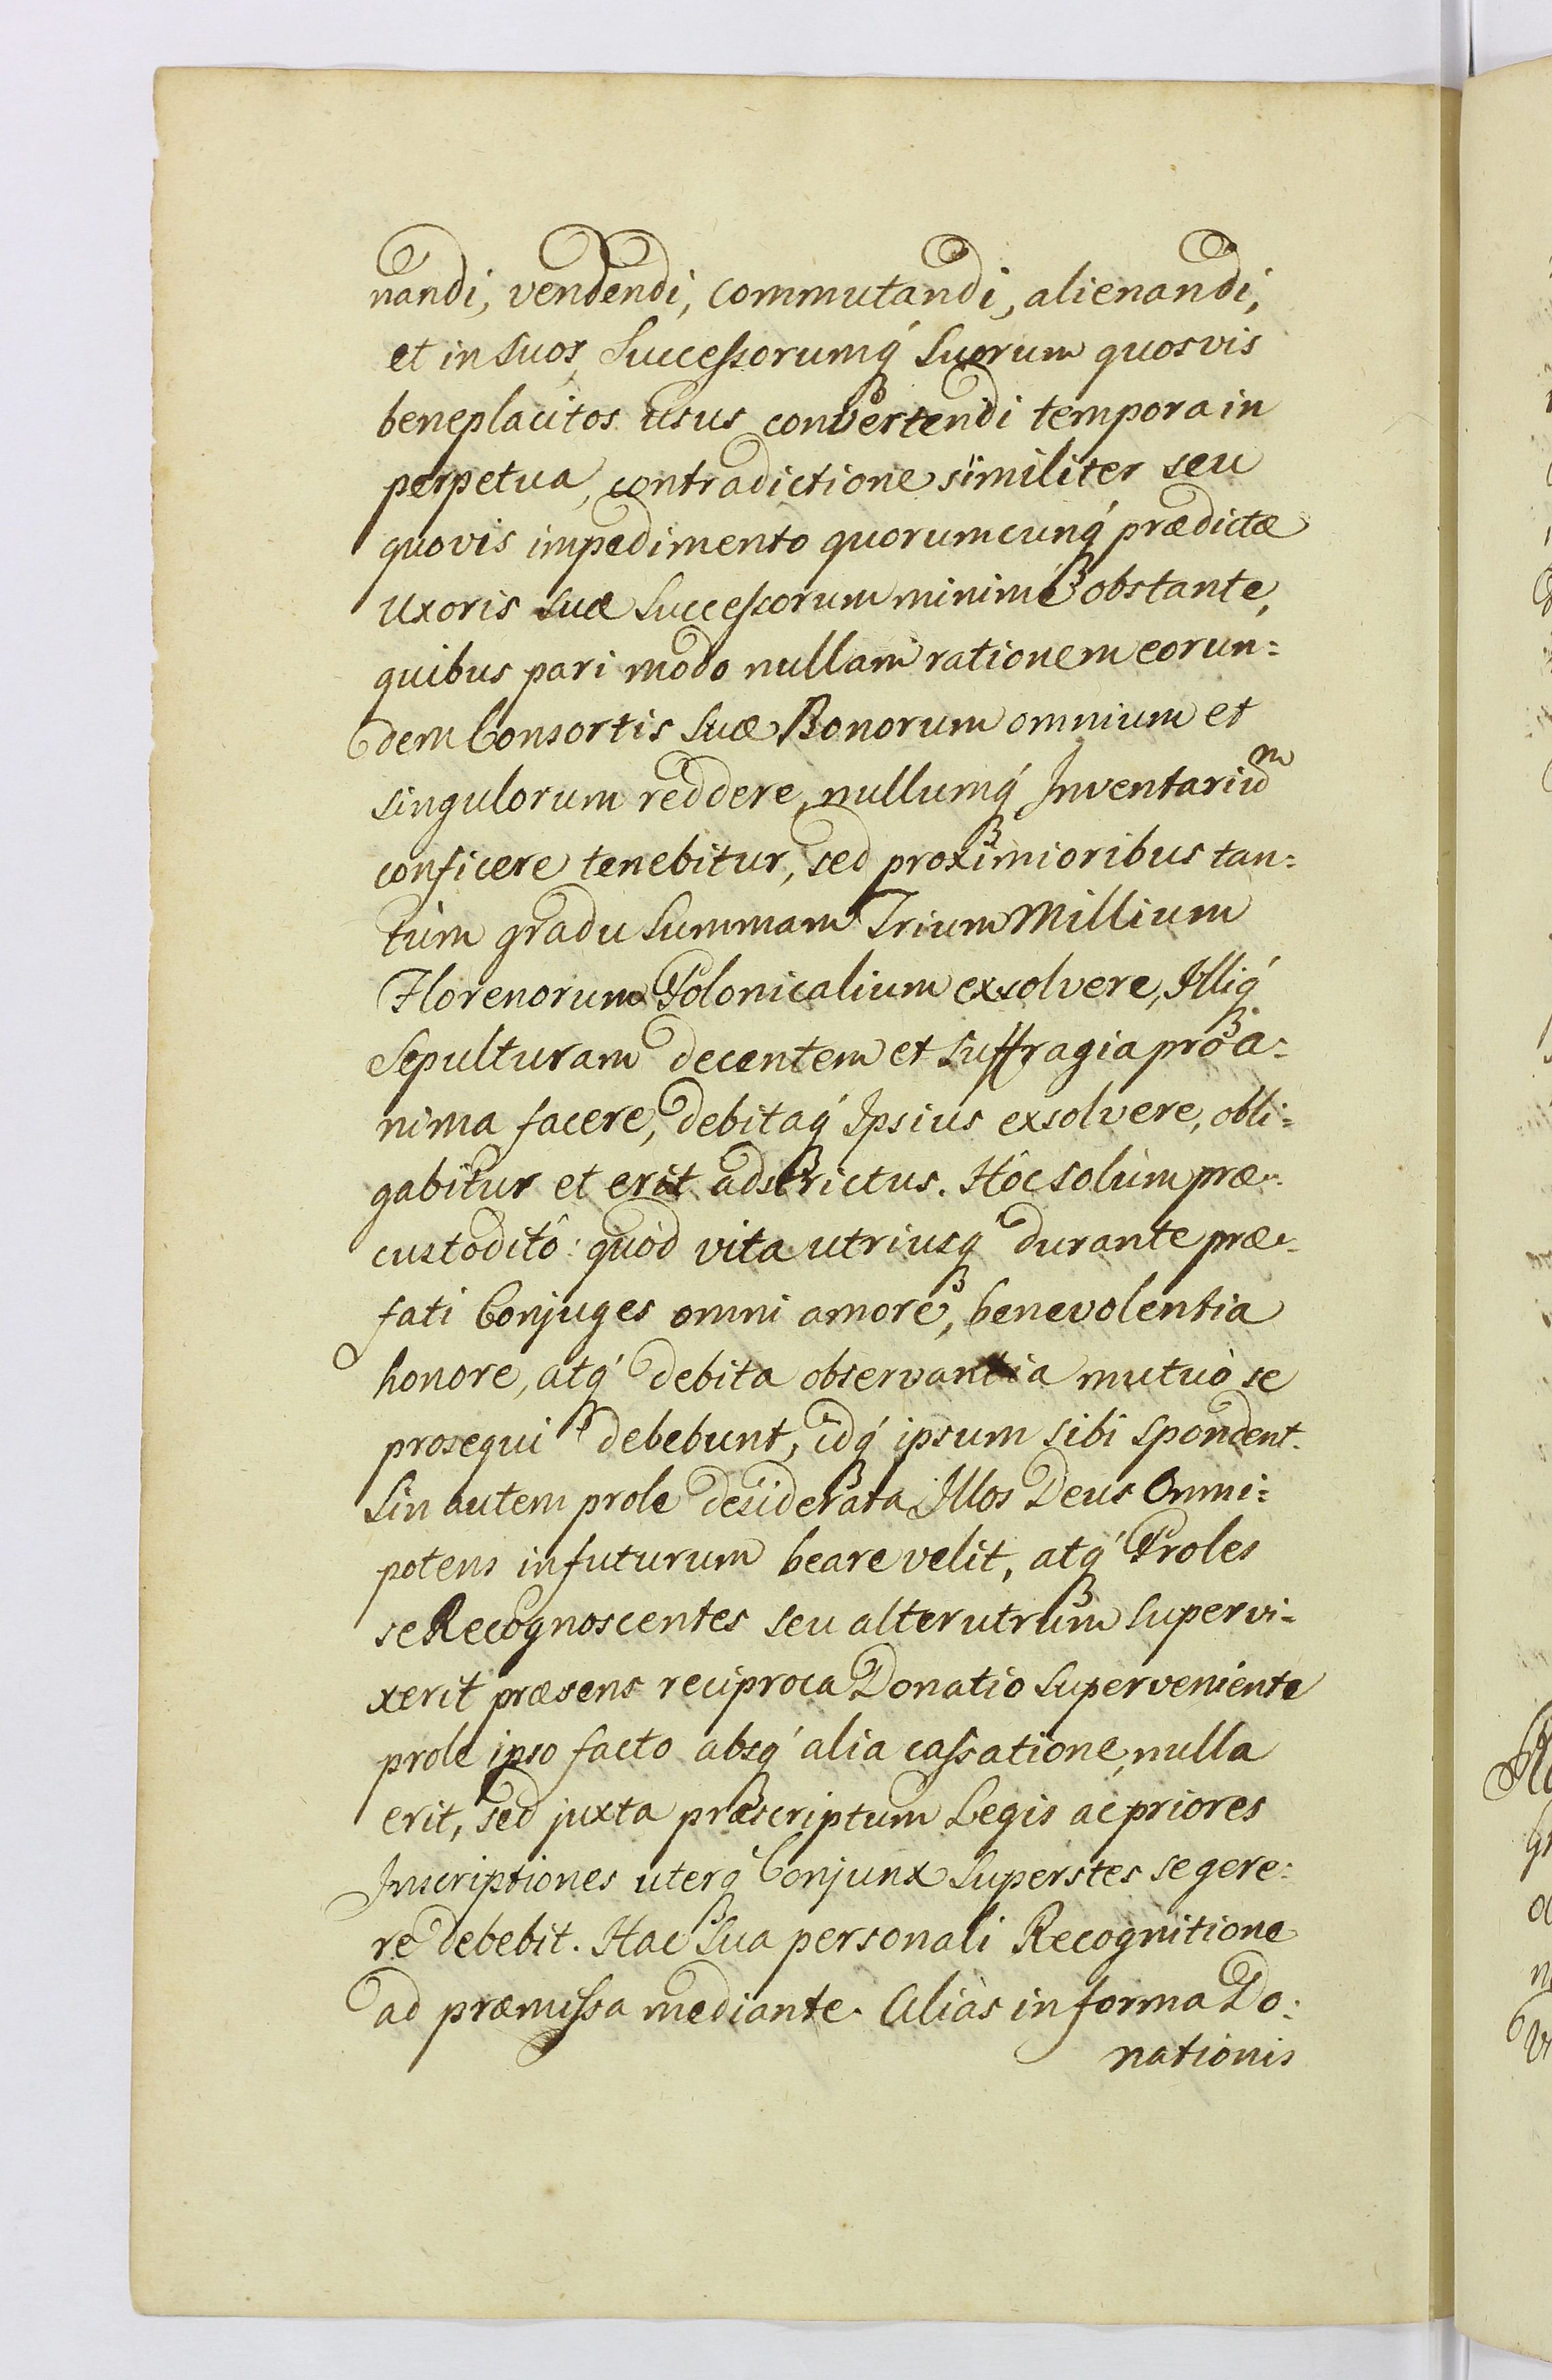 nandi, vendendi, commutandi, alienandi,
et in suos, Successorumq́ suorum quosvis
beneplacitos usus convertendi tempora in
perpetua, contradictione similiter seu
quovis impedimento quorumcunq́ prædictæ
Uxoris suæ Successorum minimé obstante,
quibus pari modo nullam rationem eorun=
dem Consortis suæ Bonorum omnium et
singulorum reddere, nullumq́ Inventariū
conficere tenebitur, sed proximioribus tan=
tùm gradu summam Trium Millium
Florenorum Polonicalium exsolvere, Illiq́
Sepulturam decentem et suffragia pro a=
nima facere, debitaq́ Ipsius exsolvere, obli=
gabitur et erit adstrictus. Hôc solùm præ=
custoditô: quòd vita utriusq́ durante præ=
fati Conjuges omni amore, benevolentia
honore, atq́ debita observantia mutuò se
prosequi debebunt, idq́ ipsum sibi spondent.
Sin autem prole desiderata Illos Deus Omni=
potens in futurum beare velit, atq́ Proles
se Recognoscentes seu alterutrum supervi=
xerit præsens reciproca Donatio superveniente
prole ipso facto absq́ alia cassatione, nulla
erit, sed juxta præscriptum Legis ac priores
Inscriptiones uterq́ Conjunx superstes se gere=
re debebit. Hac sua personali Recognitione
ad præmissa mediante. Aliàs in forma Do=
nationis